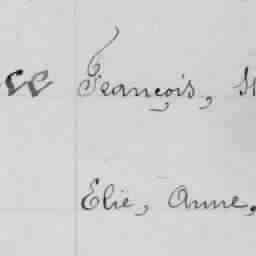 François,
Elie, Anne,